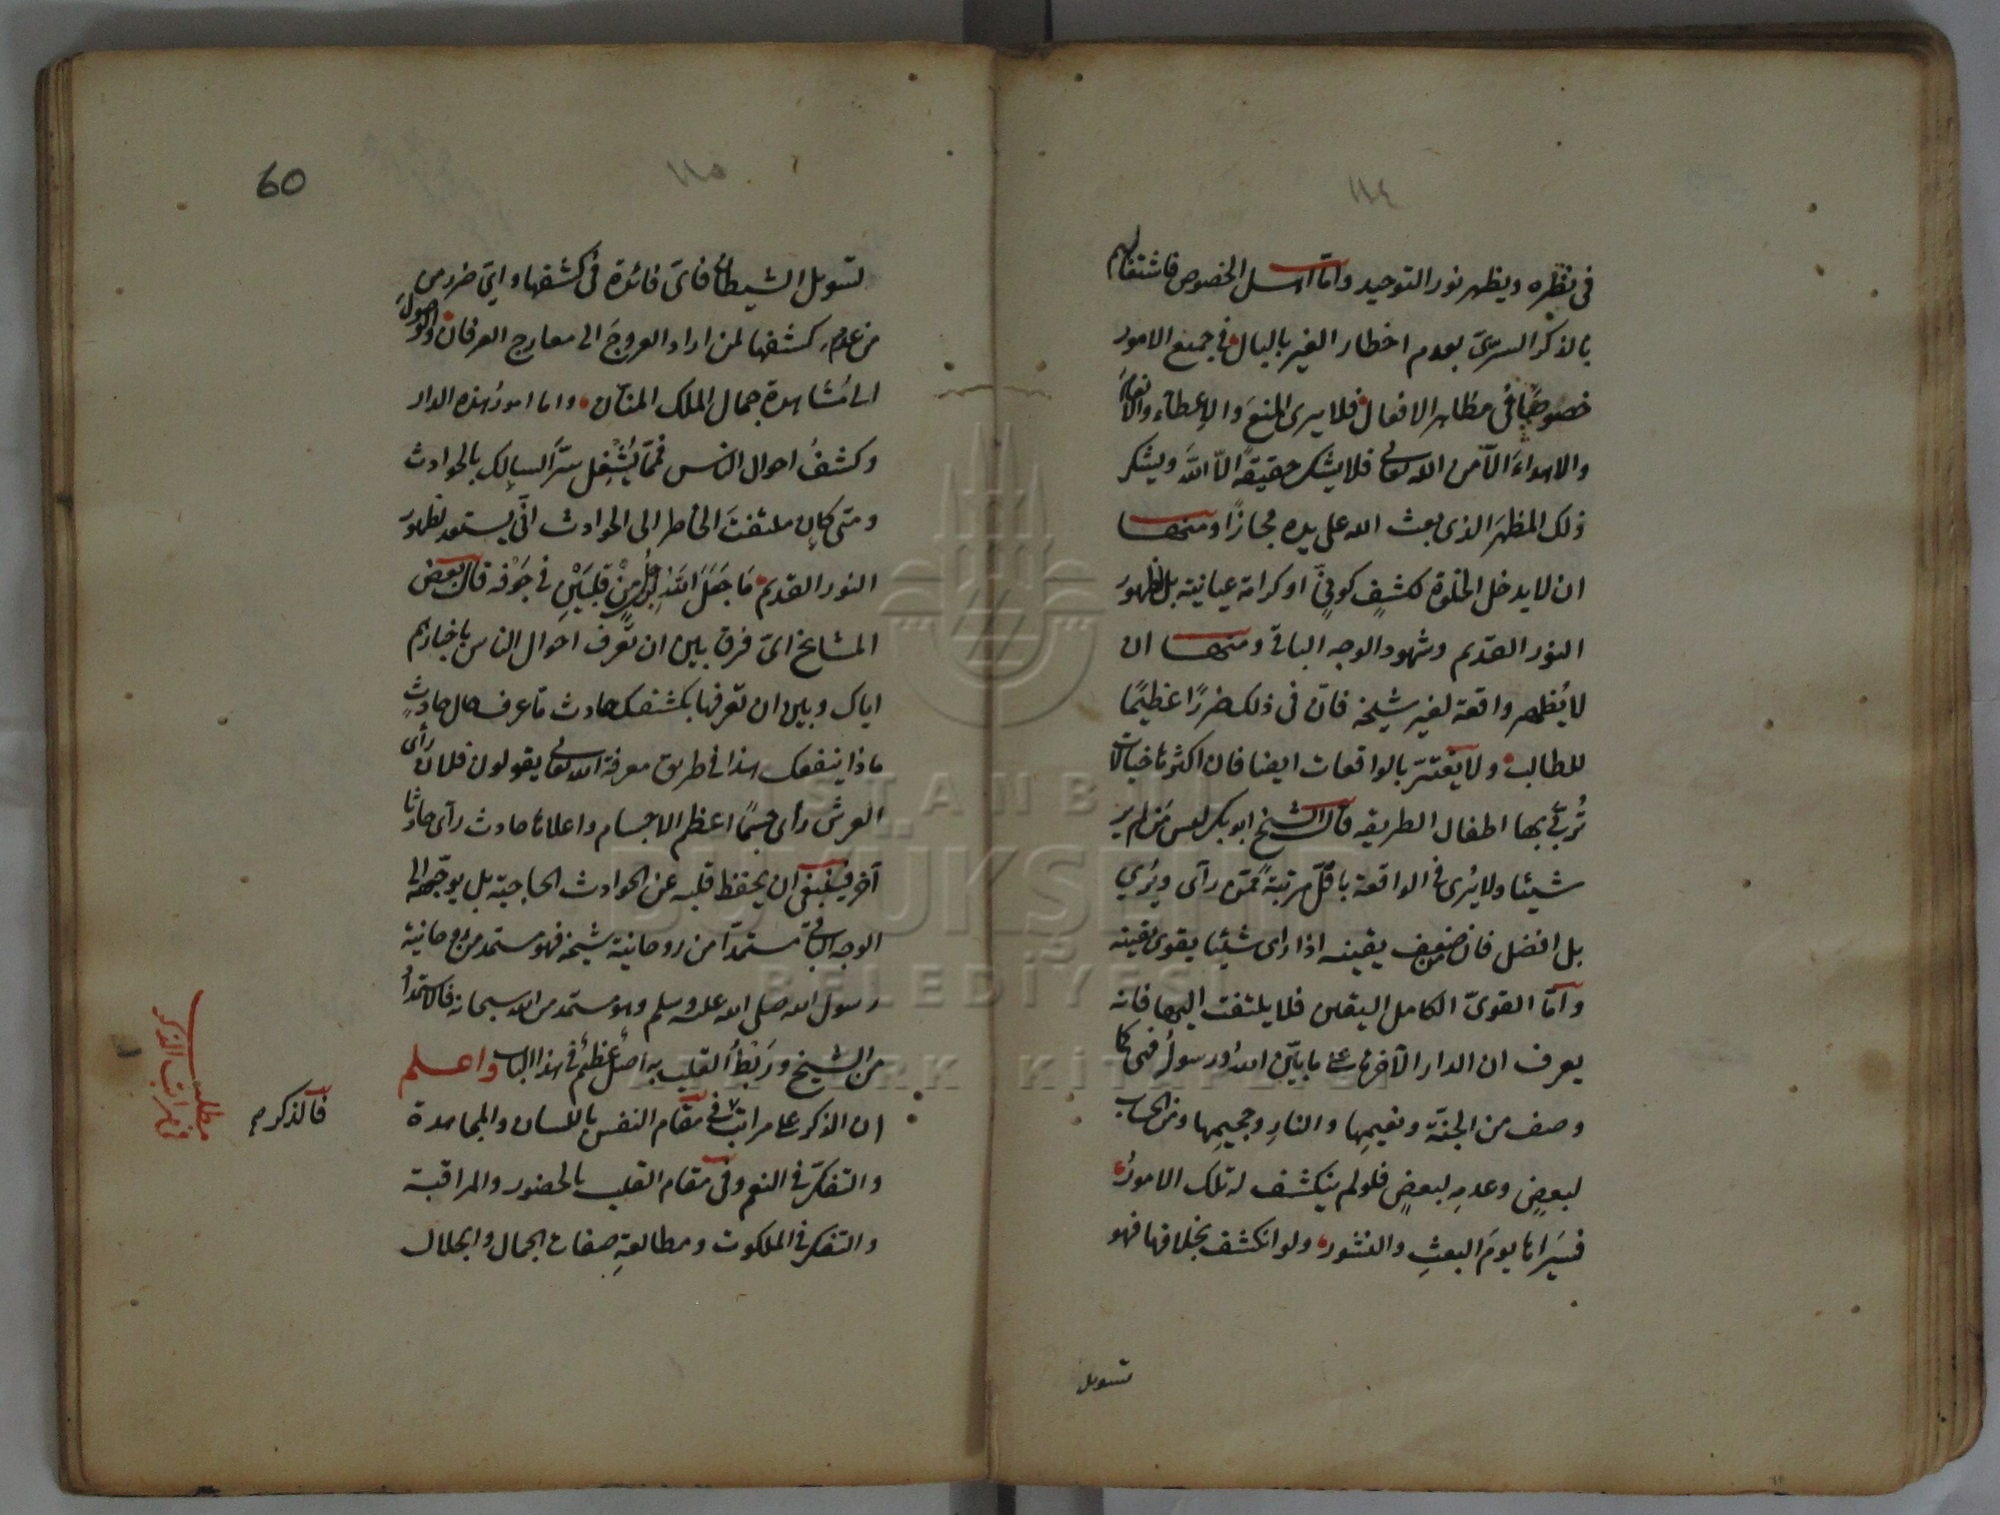 ١١٤
في نظره ويظهر نور التوحيد واما اهل الخصوص فاشتغالهم
بالذكر السري بعدم اخطار الغير بالبال في جميع الامور
خصوصًا في مظاهر الافعال فلا يرى المنع والاعطاء والانعام
والاهداء الّا من الله تعالى فلا يشكر حقيقةً الّا اللهَ ويشكر
ذلك المظهرَ الذى بعث الله على يده مجازًا ومنها
ان لا يدخل الخلوة لكشفٍ كونيٍّ او كرامة عيانية بل لظهورِ
النور القديم وشهود الوجه الباقى ومنها ان
لا يُظهر واقعة لغير شيخه فانّ فى ذلك ضررًا عظيمًا
للطالب ولا يغترّ بالواقعات ايضا فان اكثرها خيالات
تُربّى بها اطفال الطريقه قال الشيخ ابو بكر ليس من لم ير
شيئا ولا يُرى فى الواقعة باقلّ مرتبةً ممّن رآى ويُرَي
بل افضل فان ضعيف يقينه اذا رأى شيئا يقوى يقينه
وامّا القوىّ الكامل اليقين فلا يلتفت اليها فانه
يعرف ان الدار الآخرة على ما بيّن الله ورسوله فهى كما
وصف من الجنّة ونعيمِها والنارِ وجحيمِها ومن الحساب
لبعضٍ وعدمِه لبعضٍ فلو لم ينكشف له تلك الامورُ
فسيَراها يومَ البعثِ والنشور ولو انكشف بخلافها فهو
تسويل
60
١١٥
لتسويل الشيطان فاىّ فائدة فى كشفها وايّ ضررٍ من
من عدمِ كشفها لمن اراد العروجَ الى معارج العرفان والوصولَ
الى مُشاهدة جمال الملك المنّان واما امورُ هذه الدار
وكشفُ احوال الناس فممّا يُشْغِل سرَّ السالِك بالحوادث
ومتى كان ملتفتَ الخاطر الى الحوادث انّى يستعد لظهورِ
النور القديم مَا جَعَلَ اللّهُ لِرَجُلٍ مِنْ قَلبَيْنِ فى جَوْفه قال بعض
المشايخ اىّ فرق بين ان تعرف احوال الناس باخبارهم
اياك وبين ان تعرفها بكشفك حادث ما عرف حال حادثٍ
ماذا ينفعك هذا فى طريق معرفة الله تعالى يقولون فلان رأى
العرش رأى جسمًا اعظم الاجسام واعلاها حادث رآى حادثا
آخر فينبغى ان يحفظ قلبه عن الحوادث الحاجبة بل يوجّهه الى
الوجه الباقى مستمدّا من روحانية شيخه فهو مستمد من روحانية
رسول الله صلى الله عليه وسلم وهو مستمد من الله سبحانه فالاستمدادُ
من الشيخ ورَبْطُ القلب به اصلٌ عظيمٌ فى هذا الباب واعلم
ان الذكر على مراتب ففى مقام النفس باللسان والمجاهدة
والتفكّر فى النعم وفى مقام القلب بالحضور والمراقبة
والتفكر فى الملكوت ومطالعةِ صفات الجمال والجلال
فالذكر م
مطلب
فى مراتب الذكر
İSTANBUL
BÜYÜKŞEHİR
BELEDİYESİ
ATATÜRK KİTAPLIĞI